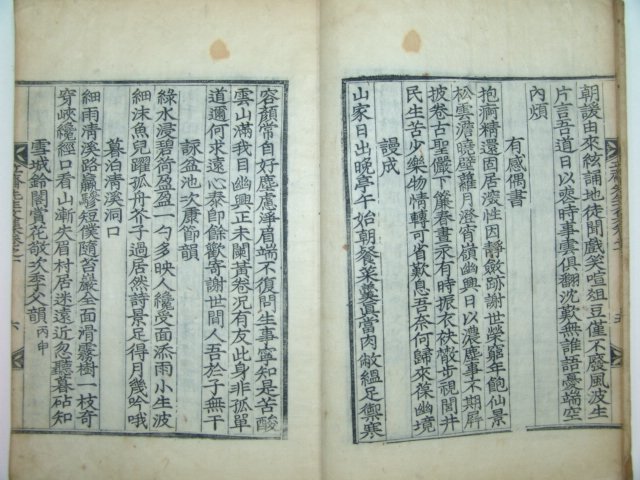 朝諼由來絃誦地徒聞戲笑喧俎豆僅不廢風波生
片言吾道日以喪時事雲俱翻沈歎無誰語憂端空
內煩
有感偶書
抱痾精還固居湥性因靜斂跡謝世榮窮年飽仙景
松雲澹曉壁蘿月澄宵嶺幽興日以濃塵事不期屛
披卷古聖儼下簾春晝永有時振衣袂散步視閭井
民生苦少樂物情轉可省歎息吾奈何歸來葆幽境
謾成
山家日出晩亭午始朝餐菜羹眞當肉敝縕足禦寒
容顏常自好塵慮凈眉端不復問生事寧知是苦酸
雲山滿我目幽興正未闌黃卷況有友此身非孤單
道邇何求遠心泰卽餘歡寄謝世間人吾於子無干
詠盆池次康節韻
綠水浸碧荷盈盈一勺多映人纔受面添雨小生波
細沫魚兒躍孤舟芥子過居然詩景足得月幾吟哦
暮泊淸溪洞口
細雨淸溪路羸驂短僕隨苔巖全面滑霧樹一枝奇
穿峽纔經口看山漸失眉村居迷遠近忽聽暮砧知
雪城鈴閣賞花敬次李丈韻丙申
六